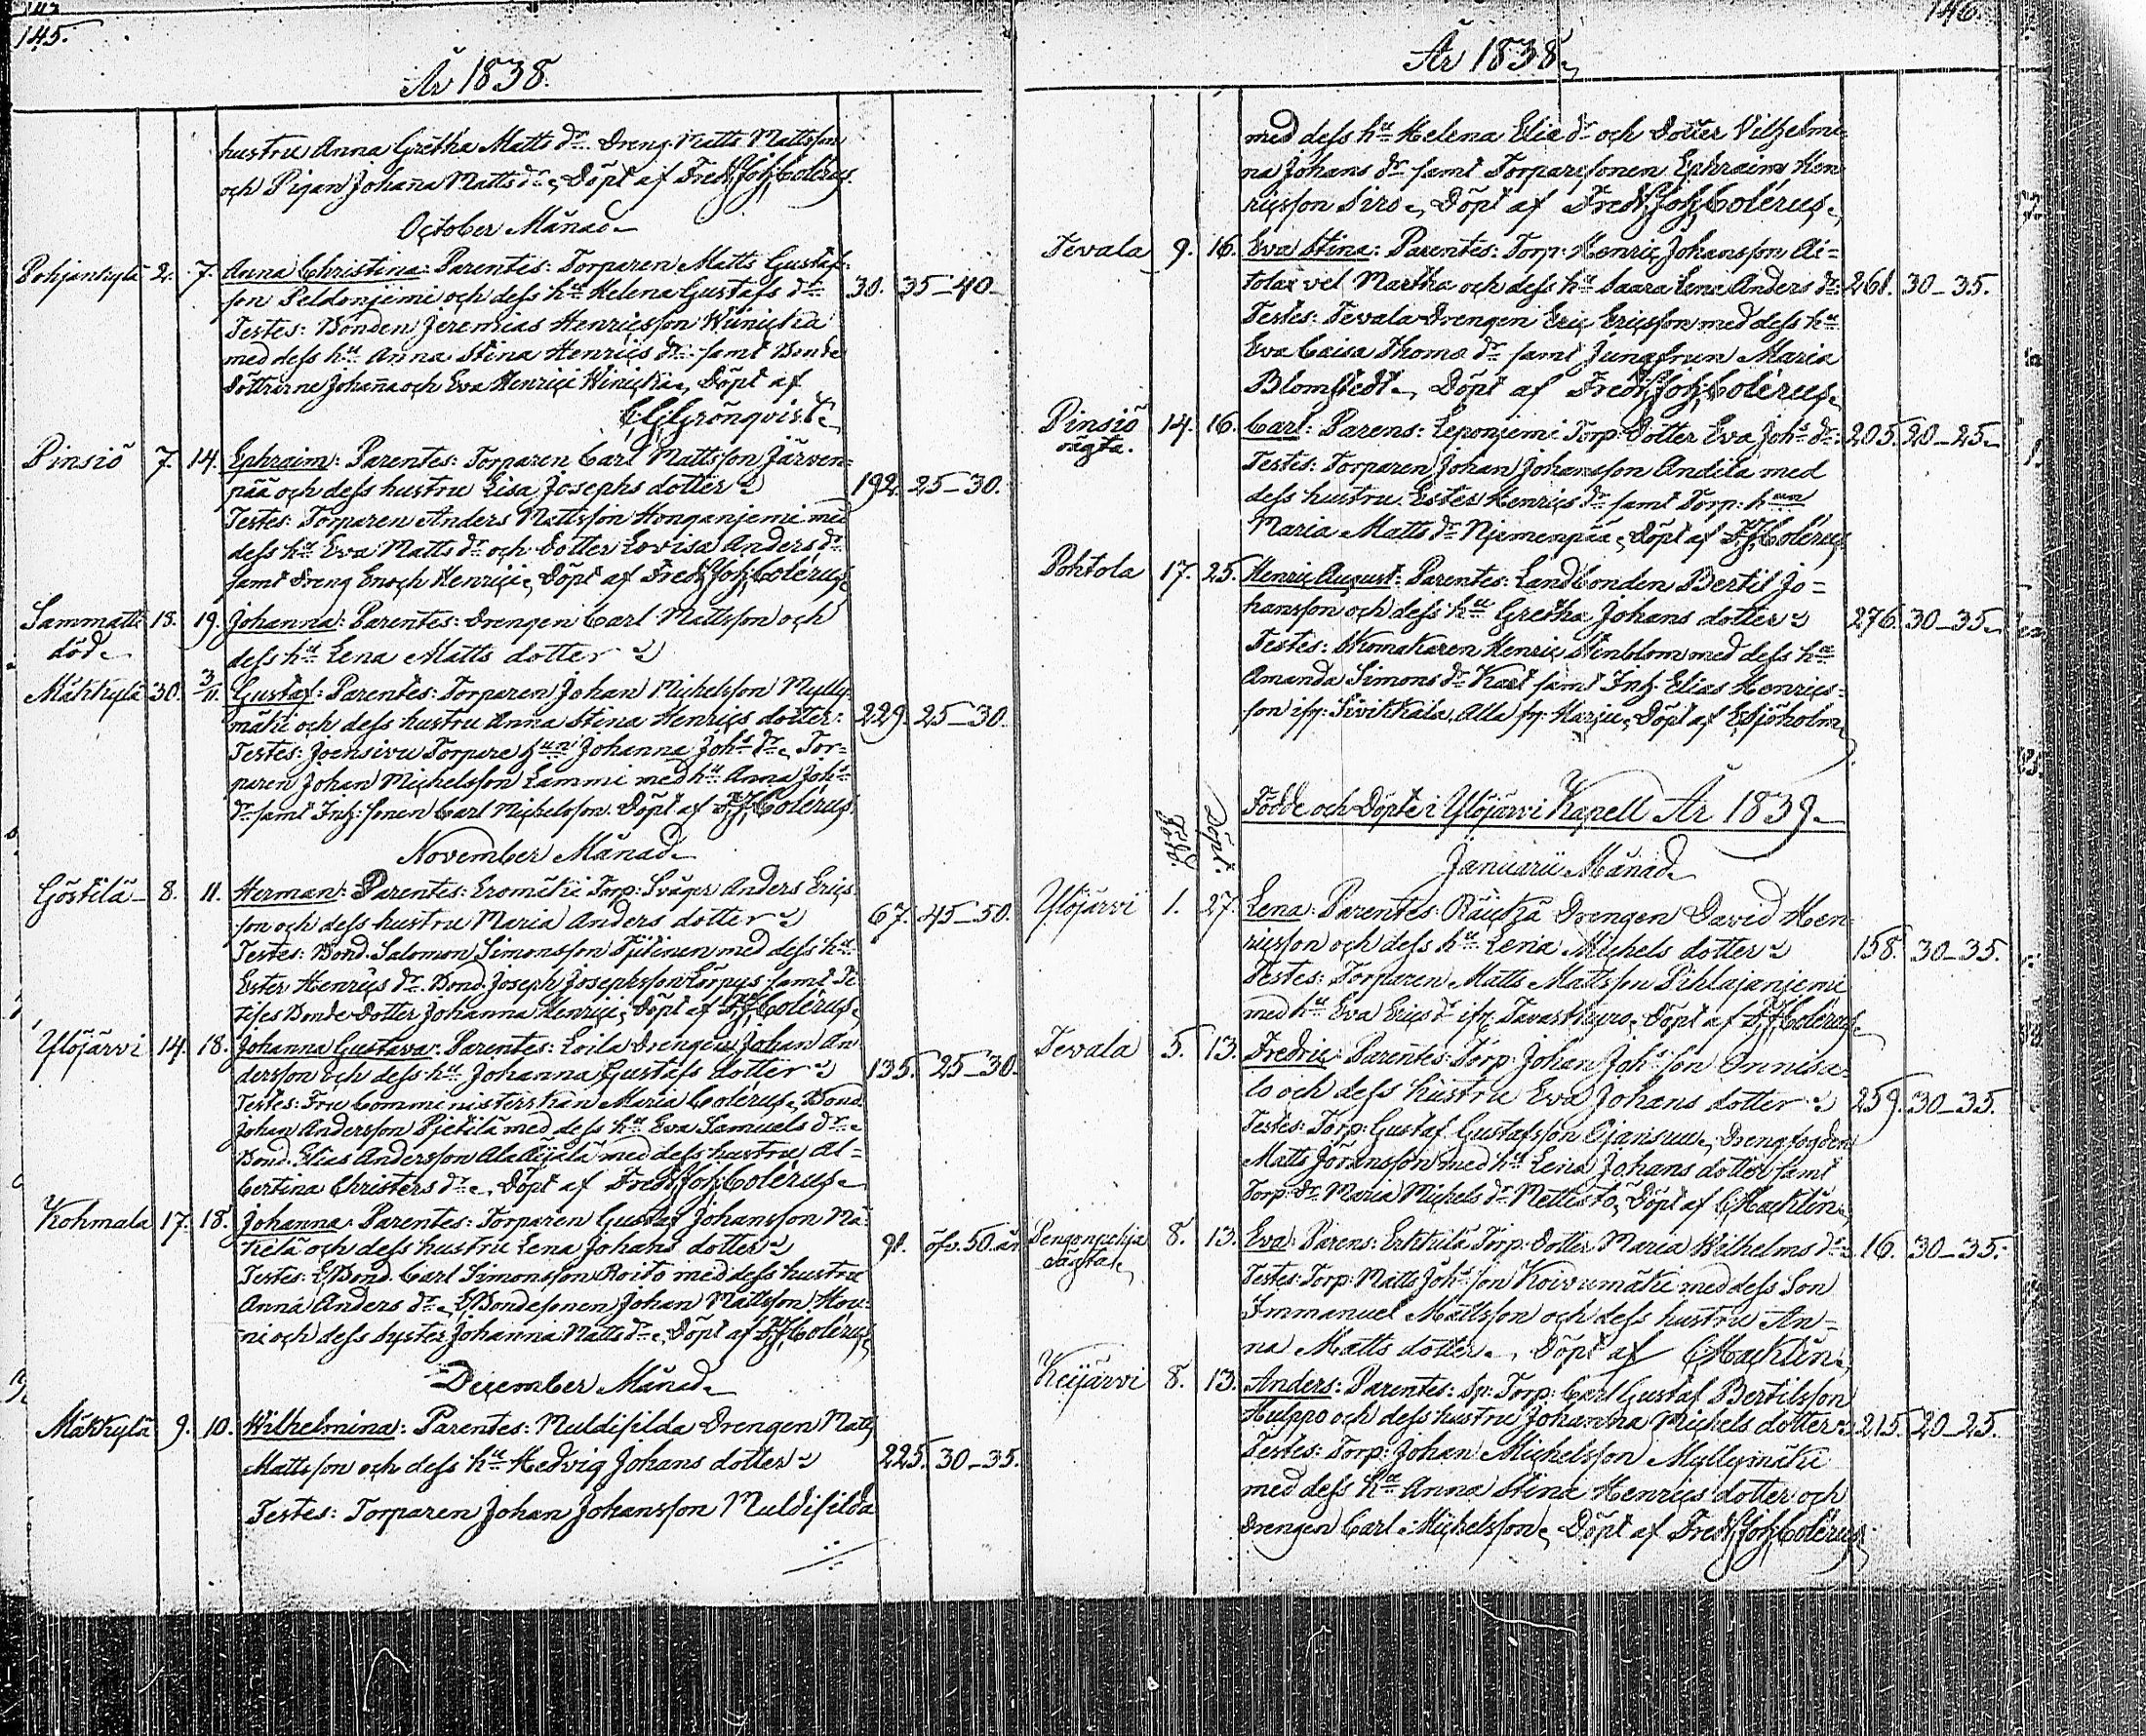 145.
År 1838.
hustru Anna Gretha Matts dr. Dreng Matts Mattsson
och Pigan Johanna Matts dr. Döpt af Fredr. Joh. Colérus.
October Månad
Pohjankylä 2. 7. Anna Christina: Parentes: Torparen Matts Gustaf-
son Peldonjemi och dess hu Helena Gustafs dr 30. 35–40.
Testes: Bonden Jeremias Henricsson
med dess hu Anna Stina Henrics dr samt Bonde
döttrarne Johanna och Eva Henrici Döpt af
C.G. Grönqvist
Pinsiö 7. 14. Ephraim: Parentes: Torparen Carl Mattsson Järven-
pää och dess hustru Lisa Josephs dotter 192. 25–30.
Testes: Torparen Anders Mattsson Honganjemi med
dess hu Eva Matts dr och dotter Lovisa Anders dr
samt Dreng Enoch Henrici, Döpt af Fredr. Joh. Colérus
Sammatti 18. 19. Johanna: Parentes: Drengen Carl Mattsson och
död. dess hu Lena Matts dotter
Mäkkylä 30. 3/11. Gustaf: Parentes: Torparen Johan Michelsson Mylly-
mäki och dess hustru Anna Stina Henrics dotter: 229. 25–30.
Testes: Joensivu Torpare hun Johanna Johs dr, Tor-
paren Johan Michelsson Lammi med hu Anna Johs
dr samt Inh: sonen Carl Michelsson. Döpt af F.J. Colérus
November Månad
Göstilä 8. 11. Herman: Parentes: Eromäki Torp: Svåger Anders Erics-
son och dess hustru Maria Anders dotter 67. 45–50.
Testes: Bond. Salomon Simonsson med dess hu
Ester Henrics dr. Bond. Joseph Josephsson samt
Bonde dotter Johanna Henrici, Döpt af F.J. Colérus
Ylöjärvi 14. 18. Johanna Gustava: Parentes: Loila Drengen Johan An-
dersson och dess hu Johanna Gustafs dotter 135. 25–30.
Testes: Fru Comministerskan Maria Colérus, Bond.
Johan Andersson Pjetilä med dess hu Eva Samuels dr
Bond. Elias Andersson med dess hustru Al-
bertina Christers dr. Döpt af Fredr. Joh. Colérus
Kohmala 17. 18. Johanna: Parentes: Torparen Gustaf Johansson Mä-
kelä och dess hustru Lena Johans dotter 91. öfv. 50. år
Testes: Bond. Carl Simonsson Roito med dess hustru
Anna Anders dr, Bondesonen Johan Mattsson Hou-
ni och dess syster Johanna Matts dr. Döpt af F.J. Colérus
December Månad
Mäkkylä 9. 10. Wilhelmina: Parentes: Muldisilda Drengen Matts
Mattsson och dess hu Hedvig Johans dotter 225. 30–35.
Testes: Torparen Johan Johansson Muldisilda
146.
År 1838.
med dess hu Helena Elie dr och dotter Vilhelmi-
na Johans dr samt Torparesonen Ephraim Hen-
ricsson Siro, Döpt af Fredr. Joh. Colérus
Tevala 9. 16. Eva Stina: Parentes: Torp: Henric Johansson Ai-
tolax vel Martha och dess hu Saara Lena Anders dr: 261. 30–35.
Testes: Tevala Drengen Eric Ericsson med dess hu
Eva Caisa Thoms dr samt Jungfrun Maria
Blomstedt, Döpt af Fredr. Joh. Colérus
Pinsiö 14. 16. Carl: Parens: Leponjemi Torp: Dotter Eva Johs dr: 205. 20–25.
oägta. Testes: Torparen Johan Johansson Andila med
dess hustru Ester Henrics dr samt Torp: hun
Maria Matts dr Njemenpää, Döpt af F.J. Colérus
Pohtola 17. 25. Henric August: Parentes: Landbonden Bertil Jo-
hansson och dess hu Gretha Johans dotter 276. 30–35.
Testes: Skomakaren Henric Stenblom med dess hu
Amanda Simons dr samt Inh. Elias Henrics-
son ifr: Siivikkala, Alla fr: Harju, Döpt af E. Sjöholm
Född. Döpt. Födde och Döpte i Ylöjärvi Kapell År 1839.
Januarii Månad
Ylöjärvi 1. 27. Lena: Parentes: Räikkä Drengen David Hen-
ricsson och dess hu Lena Michels dotter 158. 30–35.
Testes: Torparen Matts Mattsson Pihlajanjemi
med hu Eva Erics dr ifr. Tavastkyro. Döpt af F.J. Colérus
Tevala 5. 13. Fredric: Parentes: Torp: Johan Johs son Onnisa-
lo och dess hustru Eva Johans dotter 259. 30–35.
Testes: Torp: Gustaf Gustafsson Ojansuu, Drengfogden
Matts Göransson med hu Lena Johans dotter samt
Torp: dr Maria Michels dr Mettisto, Döpt af C. Macklin
Pengonpohja 8. 13. Eva: Parens: Erkkilä Torp: dotter Maria Wilhelms dr: 16. 30–35.
oägta. Testes: Torp: Matts Johs son Koivumäki med dess Son
Immanuel Mattsson och dess hustru An-
na Matts dotter, Döpt af C. Macklin
Keijärvi 8. 13. Anders: Parentes: Sp: Torp: Carl Gustaf Bertilsson
Hulppo och dess hustru Johanna Michels dotter 215. 20–25.
Testes: Torp: Johan Michelsson Myllymäki
med dess hu Anna Stina Henrics dotter och
Drengen Carl Michelsson, Döpt af Fredr. Joh. Colérus